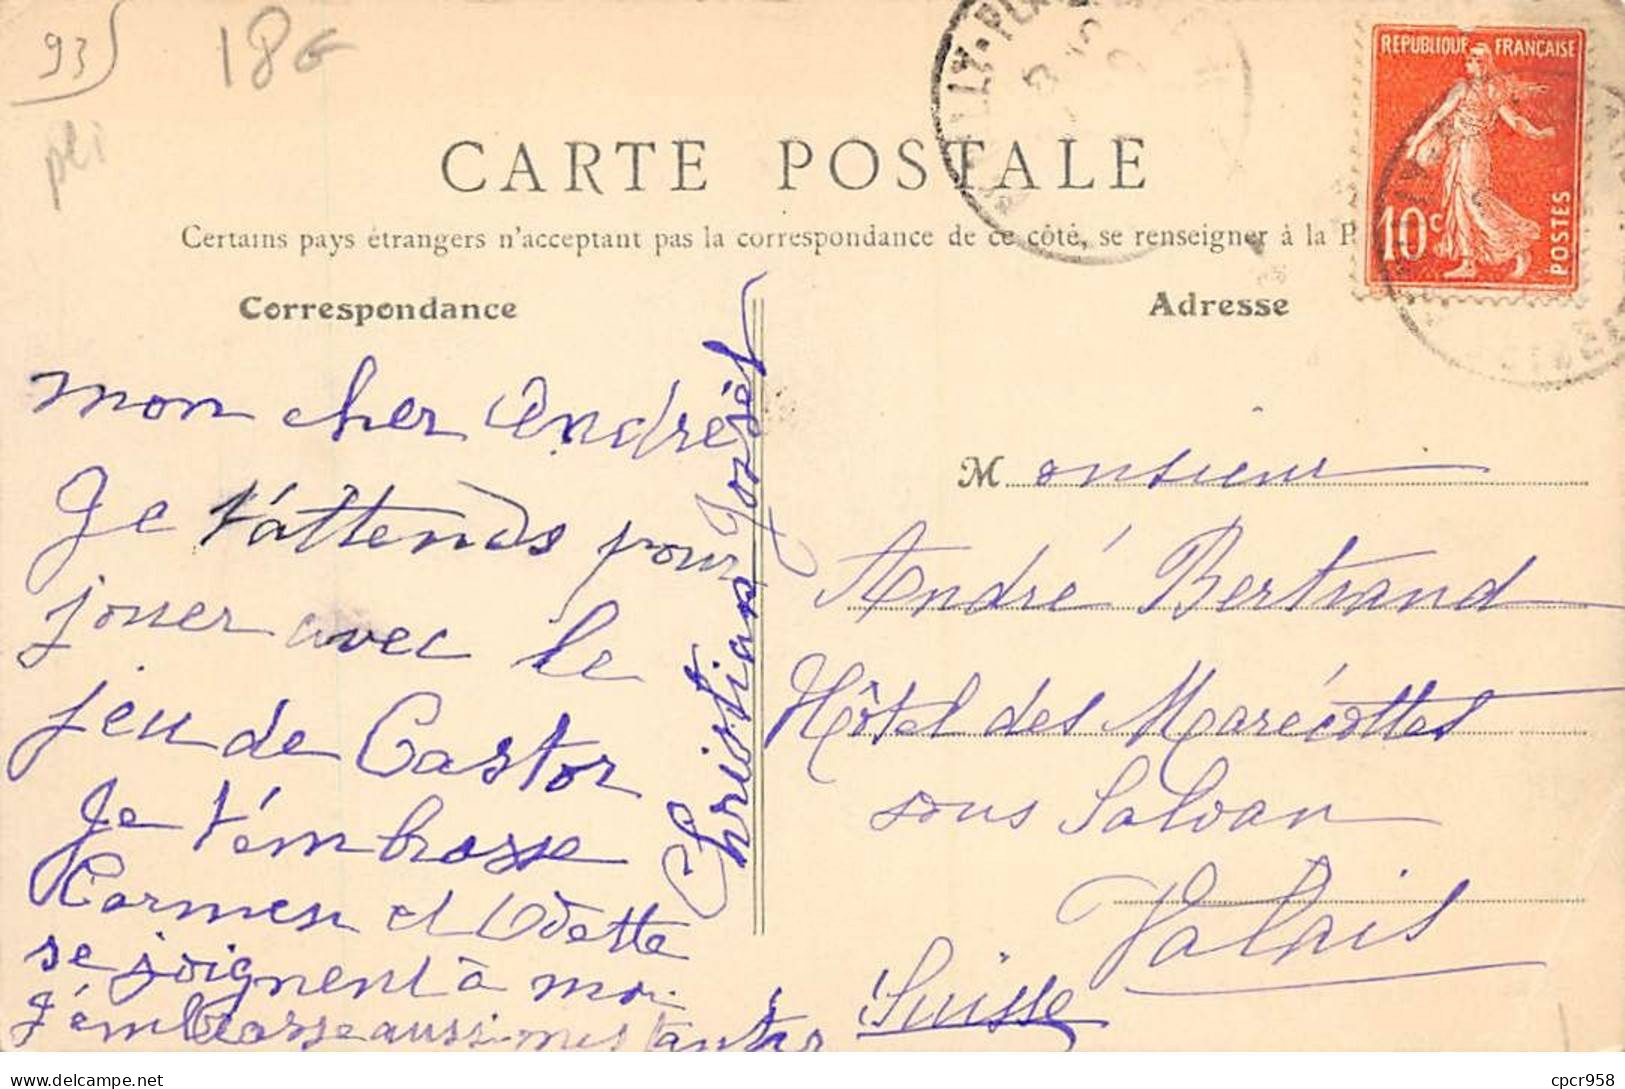 93
18€
pli
LLY-PLA
CARTE POSTALE
Certains pays étrangers n'acceptant pas la correspondance de ce côté, se renseigner à la P
REPUBLIQUE FRANÇAISE
10c
POSTES
Correspondance
Adresse
mon cher André
Je t'attends pour
jouer avec le
jeu de Castor
Je t'embrasse
Carmen et Odette
se joignent à moi
J'embrasse aussi mes tantes
Christian Joseph
Monsieur
André Bertrand
Hôtel des Marécottes
sous Salvan
Valais
Suisse
Website: delcampe.net
cpcr958